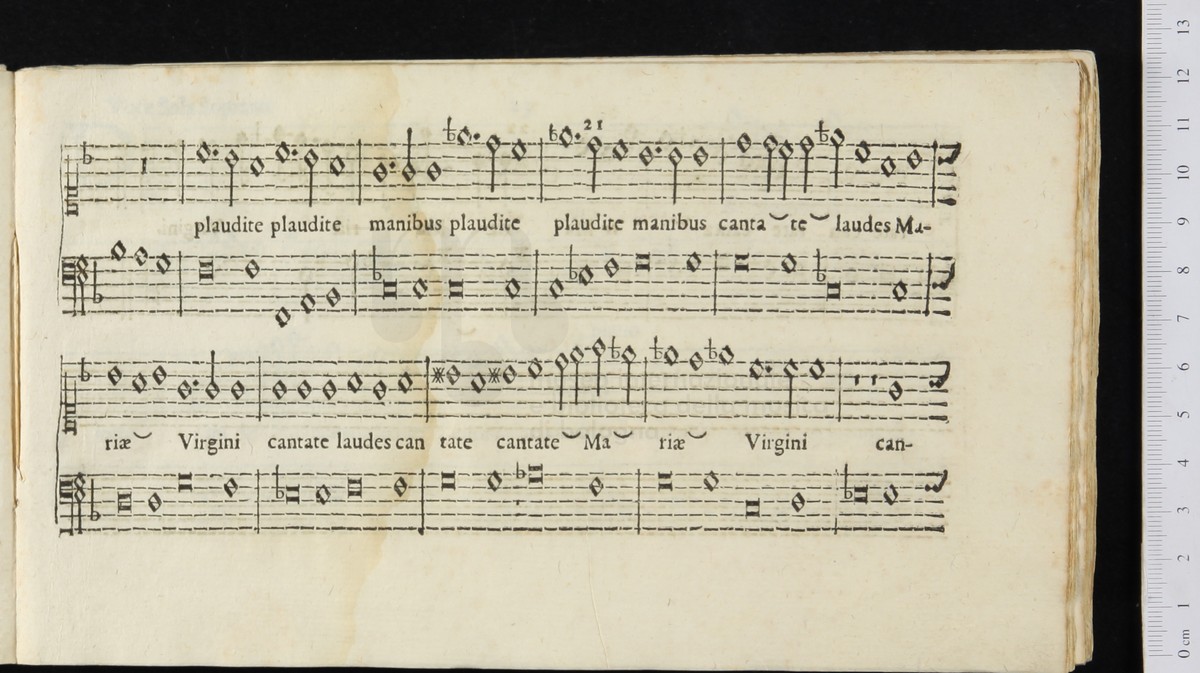 21
plaudite plaudite manibus plaudite plaudite manibus canta te laudes Ma-
riæ Virgini cantate laudes can tate cantate Ma riæ Virgini can-
13
12
11
10
9
8
7
6
5
4
3
2
1
0 cm